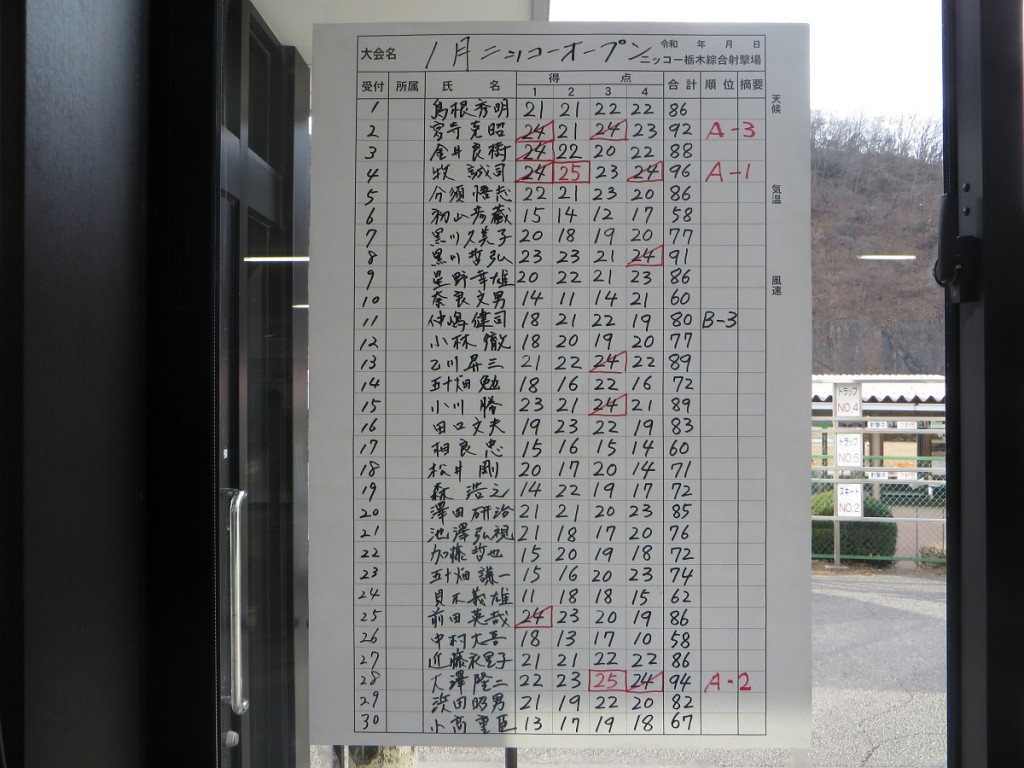 大会名 1月ニッコーオープン 令和 年 月 日
ニッコー栃木綜合射撃場
受付 所属 氏 名 得 点 合計 順位 摘要
1 2 3 4
1 島根秀明 21 21 22 22 86
2 宮寺克昭 24 21 24 23 92 A-3
3 金井良樹 24 22 20 22 88
4 牧 誠司 24 25 23 24 96 A-1
5 分須悟志 22 21 23 20 86
6 初山彦蔵 15 14 12 17 58
7 黒川久美子 20 18 19 20 77
8 黒川哲弘 23 23 21 24 91
9 星野幸雄 20 22 21 23 86
10 奈良文男 14 11 14 21 60
11 仲嶋健司 18 21 22 19 80 B-3
12 小林 徹 18 20 19 20 77
13 乙川昇三 21 22 24 22 89
14 五十畑 勉 18 16 22 16 72
15 小川 勝 23 21 24 21 89
16 田口文夫 19 23 22 19 83
17 相良 忠 15 16 15 14 60
18 松井 剛 20 17 20 14 71
19 森 浩之 14 22 19 17 72
20 澤田研治 21 21 20 23 85
21 池澤弘視 21 18 17 20 76
22 加藤哲也 15 20 19 18 72
23 五十畑 謙一 15 16 20 23 74
24 貝木義雄 11 18 18 15 62
25 前田英哉 24 23 20 19 86
26 中村大吾 18 13 17 10 58
27 近藤衣里子 21 21 22 22 86
28 大澤隆二 22 23 25 24 94 A-2
29 浜田昭男 21 19 22 20 82
30 小高重臣 13 17 19 18 67
天候
気温
風速
トラップ
NO.4
トラップ
NO.5
スキート
NO.2